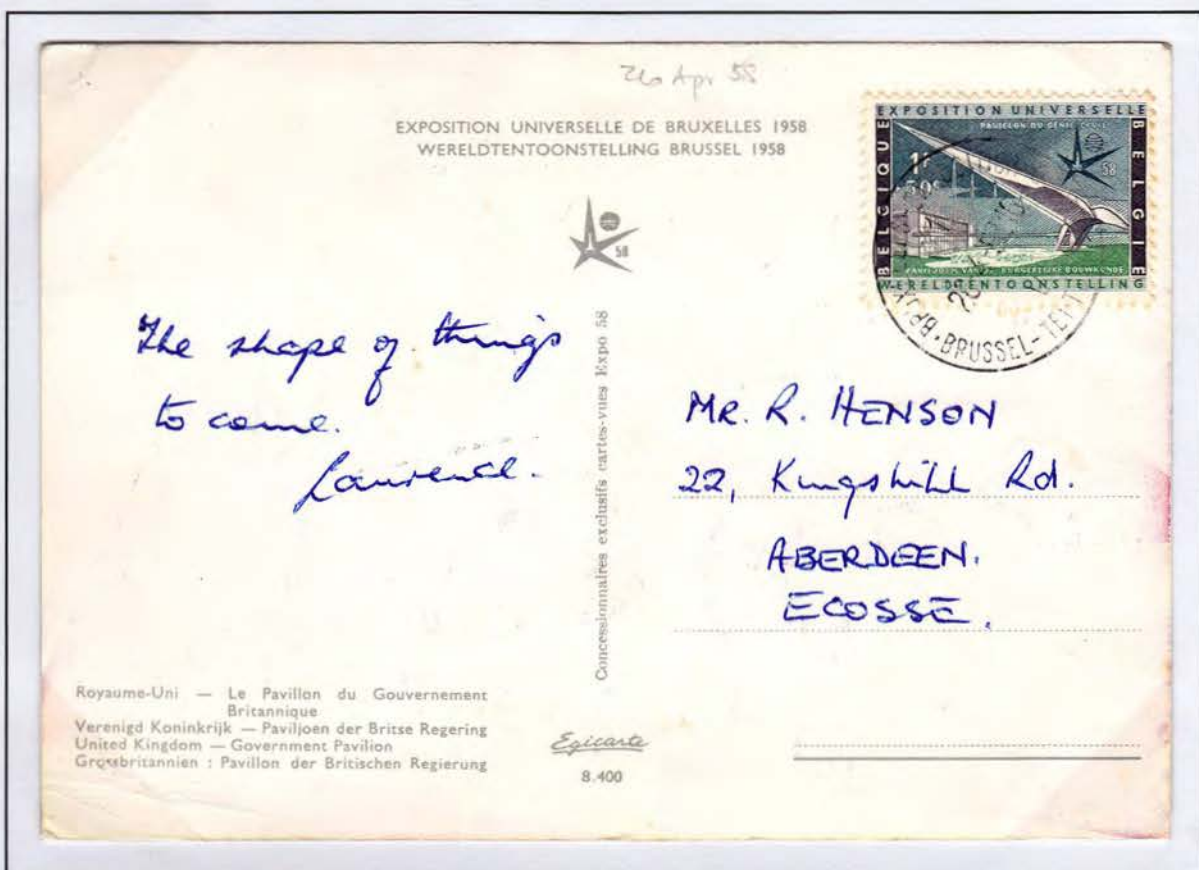 26 Apr 58
EXPOSITION UNIVERSELLE DE BRUXELLES 1958
WERELDTENTOONSTELLING BRUSSEL 1958
58
EXPOSITION UNIVERSELLE
PAVILLON DU GENIE CIVIL
BELGIQUE
BELGIE
1F
+50c
58
PAVILJOEN VAN BURGERLIJKE BOUWKUNDE
WERELDTENTOONSTELLING
BRUSSEL
The shape of things
to come.
Laurence.
Concessionnaires exclusifs cartes-vues Expo 58
MR. R. HENSON
22, Kingshill Rd.
ABERDEEN.
ECOSSE.
Royaume-Uni — Le Pavillon du Gouvernement
Britannique
Verenigd Koninkrijk — Paviljoen der Britse Regering
United Kingdom — Government Pavilion
Grossbritannien : Pavillon der Britischen Regierung
Egicarte
8.400